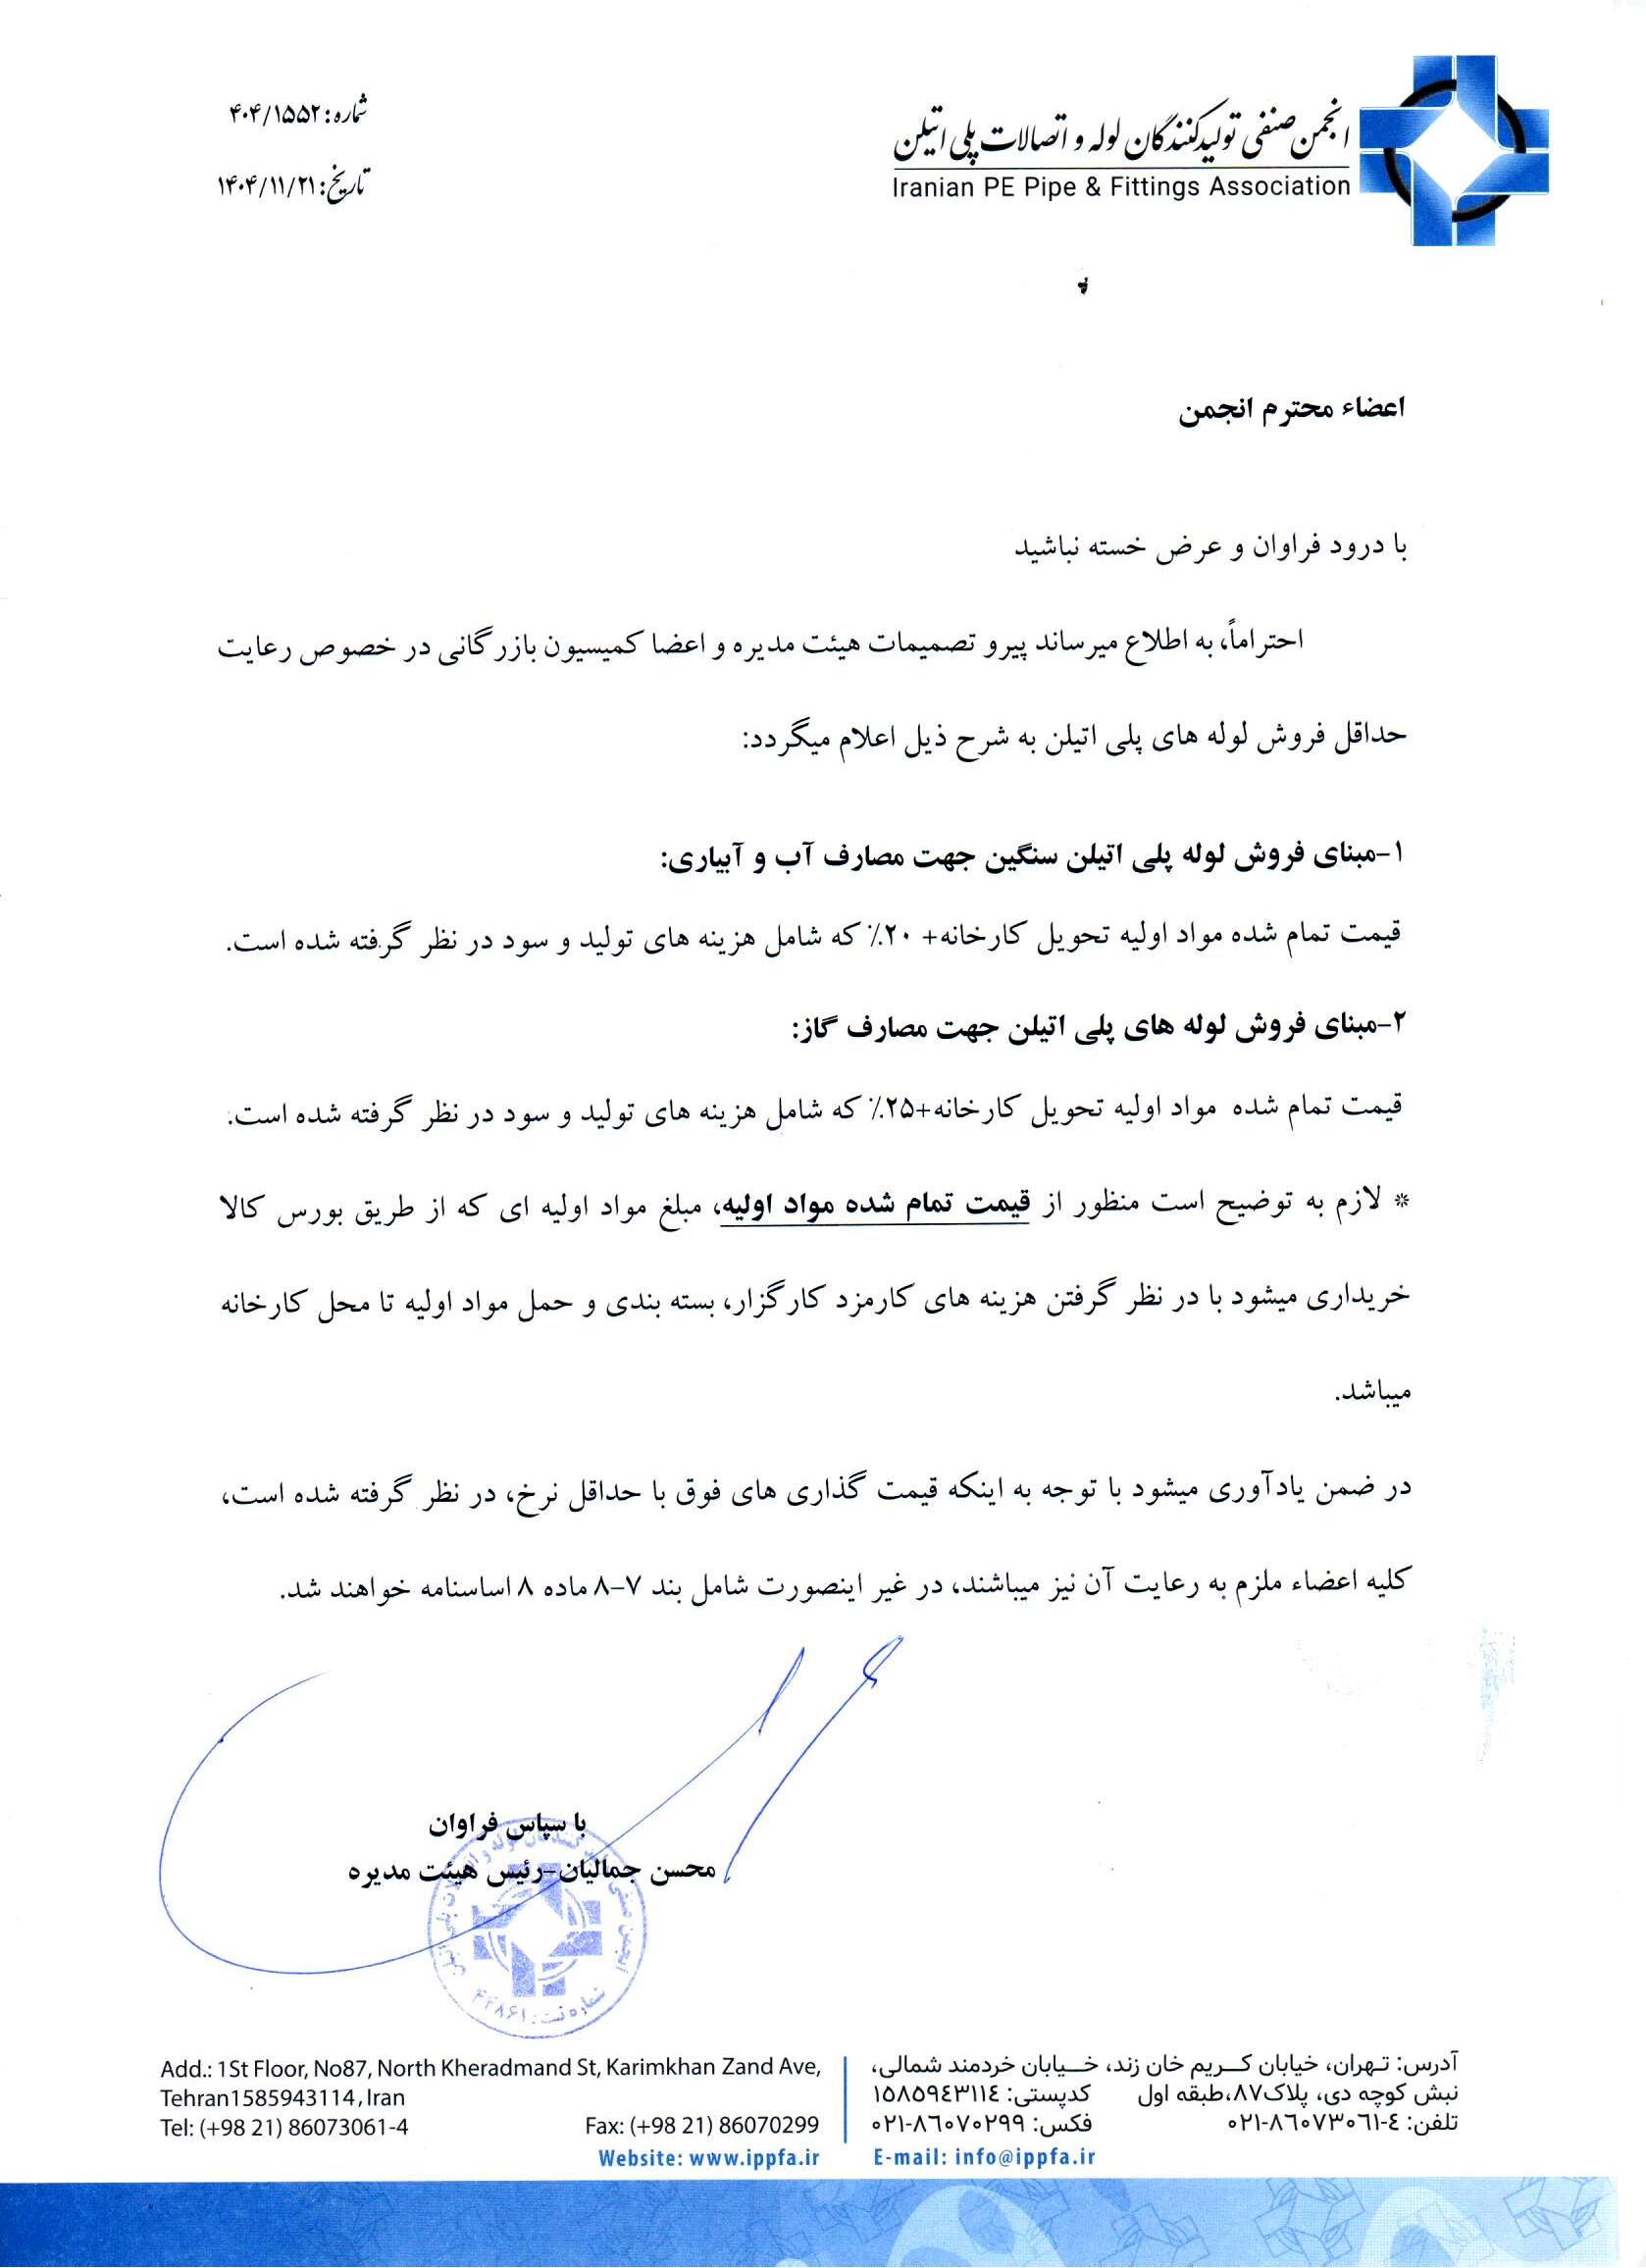 شماره: ۴۰۴/۱۵۵۲
تاریخ: ۱۴۰۴/۱۱/۲۱
انجمن صنفی تولیدکنندگان لوله و اتصالات پلی اتیلن
Iranian PE Pipe & Fittings Association
اعضاء محترم انجمن
با درود فراوان و عرض خسته نباشید
احتراماً، به اطلاع میرساند پیرو تصمیمات هیئت مدیره و اعضا کمیسیون بازرگانی در خصوص رعایت
حداقل فروش لوله های پلی اتیلن به شرح ذیل اعلام میگردد:
۱-مبنای فروش لوله پلی اتیلن سنگین جهت مصارف آب و آبیاری:
قیمت تمام شده مواد اولیه تحویل کارخانه+ ۲۰٪ که شامل هزینه های تولید و سود در نظر گرفته شده است.
۲-مبنای فروش لوله های پلی اتیلن جهت مصارف گاز:
قیمت تمام شده مواد اولیه تحویل کارخانه+۲۵٪ که شامل هزینه های تولید و سود در نظر گرفته شده است.
* لازم به توضیح است منظور از قیمت تمام شده مواد اولیه، مبلغ مواد اولیه ای که از طریق بورس کالا
خریداری میشود با در نظر گرفتن هزینه های کارمزد کارگزار، بسته بندی و حمل مواد اولیه تا محل کارخانه
میباشد.
در ضمن یادآوری میشود با توجه به اینکه قیمت گذاری های فوق با حداقل نرخ، در نظر گرفته شده است،
کلیه اعضاء ملزم به رعایت آن نیز میباشند، در غیر اینصورت شامل بند ۷-۸ ماده ۸ اساسنامه خواهند شد.
با سپاس فراوان
محسن جمالیان-رئیس هیئت مدیره
آدرس: تهران، خیابان کریم خان زند، خیابان خردمند شمالی،
نبش کوچه دی، پلاک۸۷،طبقه اول کدپستی: ۱۵۸۵۹٤۳۱۱٤
تلفن: ٤-۰۲۱-۸٦۰۷۳۰٦۱ فکس: ۰۲۱-۸٦۰۷۰۲۹۹
E-mail: info@ippfa.ir
Add.: 1St Floor, No87, North Kheradmand St, Karimkhan Zand Ave,
Tehran1585943114, Iran
Tel: (+98 21) 86073061-4 Fax: (+98 21) 86070299
Website: www.ippfa.ir